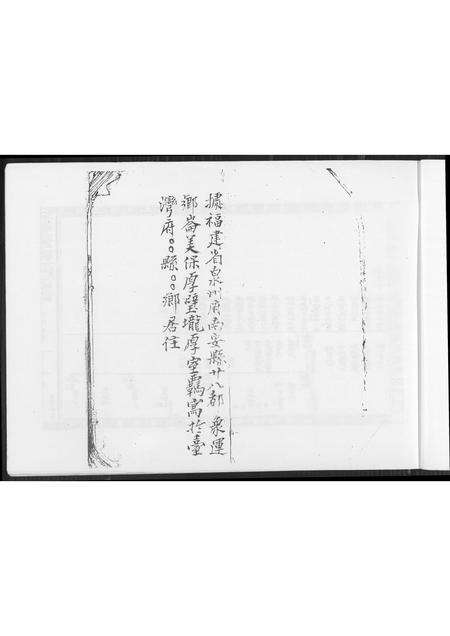 據福建省泉州府南安縣廿八都 眾運
鄉崙美保厚壁壠厚室羈寓於臺
灣府○○縣○○鄉居住